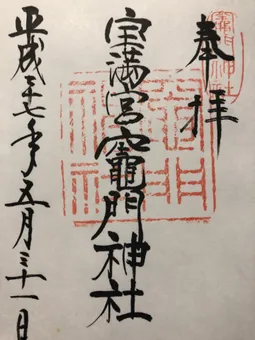 奉拝
宝満宮竈門神社
平成二十七年五月三十一日